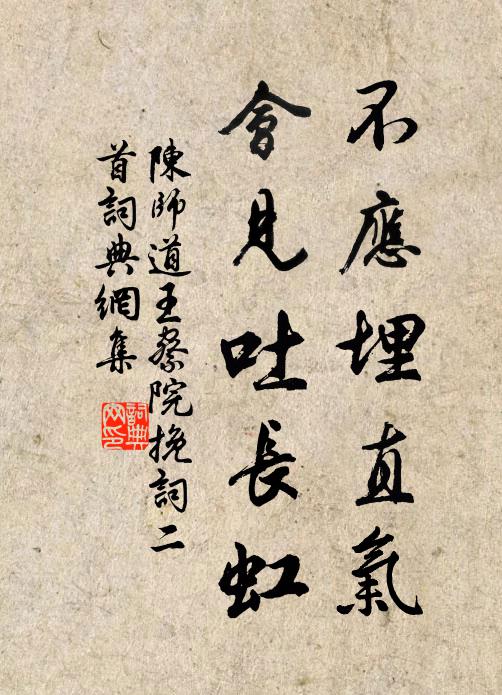 不應埋直氣
會見吐長虹
陳師道王察院挽詞二
首詞典網集
詞典
网印